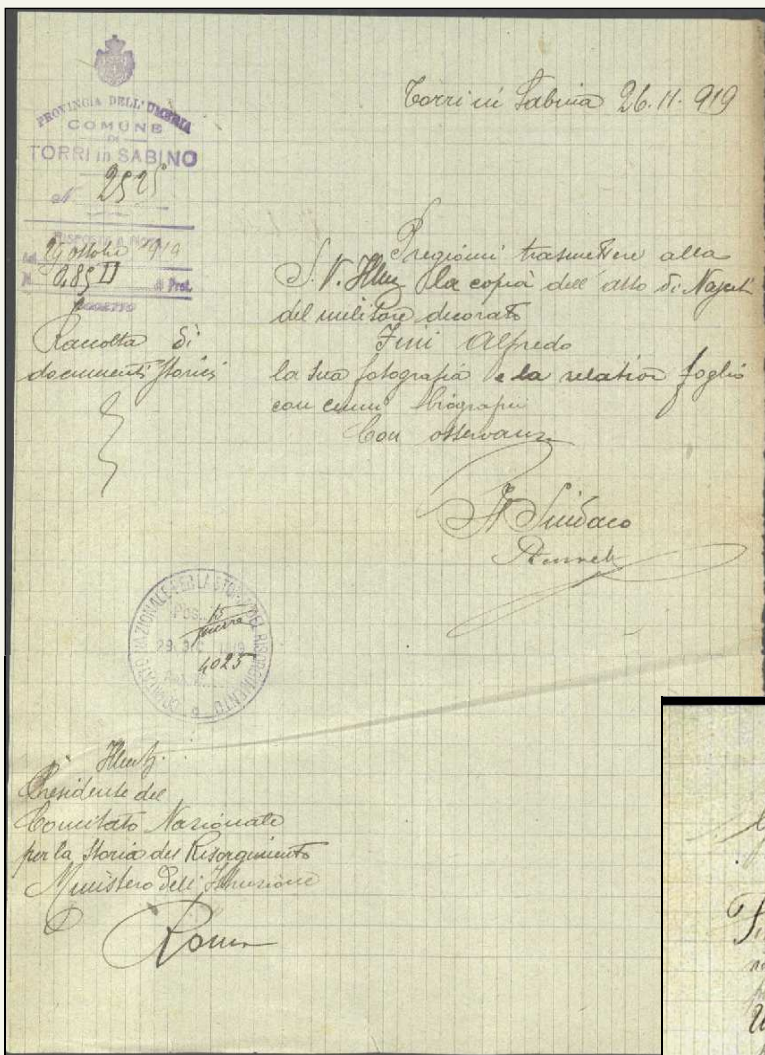 PROVINCIA DELL'UMBRIA
COMUNE
DI
TORRI in SABINO
N. 2525
RISPOSTA A NOTA
29 ottobre 1919
N. 985 II di Prot.
OGGETTO
Raccolta di
documenti storici
Torri in Sabina 26.11.919
Pregiomi trasmettere alla
S. V. Illma la copia dell'atto di
del militare decorato
Fini Alfredo
la sua fotografia e la relativa foglio
con cenni biografici
Con osservanza
Il Sindaco
COMITATO NAZIONALE PER LA STORIA DEL RISORGIMENTO
Pos. 15
guerra
4025
Presidente del
Comitato Nazionale
per la Storia del Risorgimento
Ministero dell'Istruzione
Roma